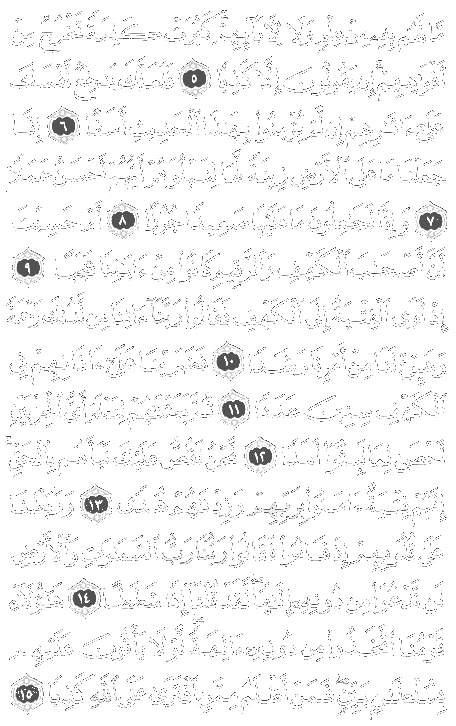 مَّا لَهُم بِهِۦ مِنْ عِلْمٍ وَلَا لِـَٔابَآئِهِمْ ۚ كَبُرَتْ كَلِمَةً تَخْرُجُ مِنْ
أَفْوَٰهِهِمْ ۚ إِن يَقُولُونَ إِلَّا كَذِبًا ٥ فَلَعَلَّكَ بَـٰخِعٌ نَّفْسَكَ
عَلَىٰٓ ءَاثَـٰرِهِمْ إِن لَّمْ يُؤْمِنُوا۟ بِهَـٰذَا ٱلْحَدِيثِ أَسَفًا ٦ إِنَّا
جَعَلْنَا مَا عَلَى ٱلْأَرْضِ زِينَةً لَّهَا لِنَبْلُوَهُمْ أَيُّهُمْ أَحْسَنُ عَمَلًا
٧ وَإِنَّا لَجَـٰعِلُونَ مَا عَلَيْهَا صَعِيدًا جُرُزًا ٨ أَمْ حَسِبْتَ
أَنَّ أَصْحَـٰبَ ٱلْكَهْفِ وَٱلرَّقِيمِ كَانُوا۟ مِنْ ءَايَـٰتِنَا عَجَبًا ٩
إِذْ أَوَى ٱلْفِتْيَةُ إِلَى ٱلْكَهْفِ فَقَالُوا۟ رَبَّنَآ ءَاتِنَا مِن لَّدُنكَ رَحْمَةً
وَهَيِّئْ لَنَا مِنْ أَمْرِنَا رَشَدًا ١٠ فَضَرَبْنَا عَلَىٰٓ ءَاذَانِهِمْ فِى
ٱلْكَهْفِ سِنِينَ عَدَدًا ١١ ثُمَّ بَعَثْنَـٰهُمْ لِنَعْلَمَ أَىُّ ٱلْحِزْبَيْنِ
أَحْصَىٰ لِمَا لَبِثُوٓا۟ أَمَدًا ١٢ نَّحْنُ نَقُصُّ عَلَيْكَ نَبَأَهُم بِٱلْحَقِّ ۚ
إِنَّهُمْ فِتْيَةٌ ءَامَنُوا۟ بِرَبِّهِمْ وَزِدْنَـٰهُمْ هُدًى ١٣ وَرَبَطْنَا
عَلَىٰ قُلُوبِهِمْ إِذْ قَامُوا۟ فَقَالُوا۟ رَبُّنَا رَبُّ ٱلسَّمَـٰوَٰتِ وَٱلْأَرْضِ
لَن نَّدْعُوَا۟ مِن دُونِهِۦٓ إِلَـٰهًا ۖ لَّقَدْ قُلْنَآ إِذًا شَطَطًا ١٤ هَـٰٓؤُلَآءِ
قَوْمُنَا ٱتَّخَذُوا۟ مِن دُونِهِۦٓ ءَالِهَةً ۖ لَّوْلَا يَأْتُونَ عَلَيْهِم
بِسُلْطَـٰنٍۭ بَيِّنٍ ۖ فَمَنْ أَظْلَمُ مِمَّنِ ٱفْتَرَىٰ عَلَى ٱللَّهِ كَذِبًا ١٥